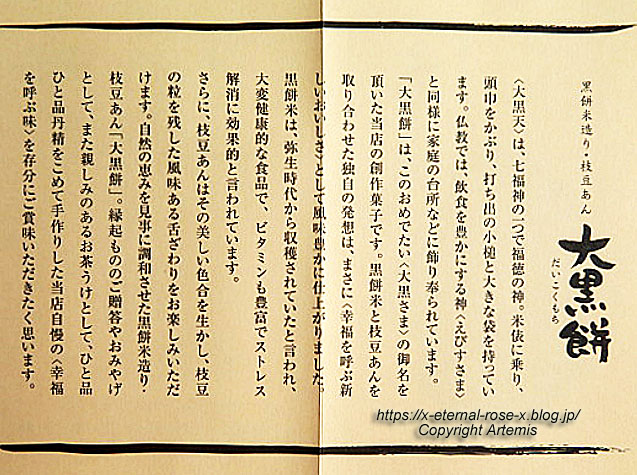 黒餅米造り・枝豆あん
大黒餅
だいこくもち
〈大黒天〉は、七福神の一つで福徳の神。米俵に乗り、
頭巾をかぶり、打ち出の小槌と大きな袋を持ってい
ます。仏教では、飲食を豊かにする神〈えびすさま〉
と同様に家庭の台所などに飾り奉られています。
「大黒餅」は、このおめでたい〈大黒さま〉の御名を
頂いた当店の創作菓子です。黒餅米と枝豆あんを
取り合わせた独自の発想は、まさに〈幸福を呼ぶ新
しいおいしさ〉として風味豊かに仕上がりました。
黒餅米は、弥生時代から収穫されていたと言われ、
大変健康的な食品で、ビタミンも豊富でストレス
解消に効果的と言われています。
さらに、枝豆あんはその美しい色合を生かし、枝豆
の粒を残した風味ある舌ざわりをお楽しみいただ
けます。自然の恵みを見事に調和させた黒餅米造り・
枝豆あん「大黒餅」。縁起もののご贈答やおみやげ
として、また親しみのあるお茶うけとして、ひと品
ひと品丹精をこめて手作りした当店自慢の〈幸福
を呼ぶ味〉を存分にご賞味いただきたく思います。
https://x-eternal-rose-x.blog.jp/
Copyright Artemis